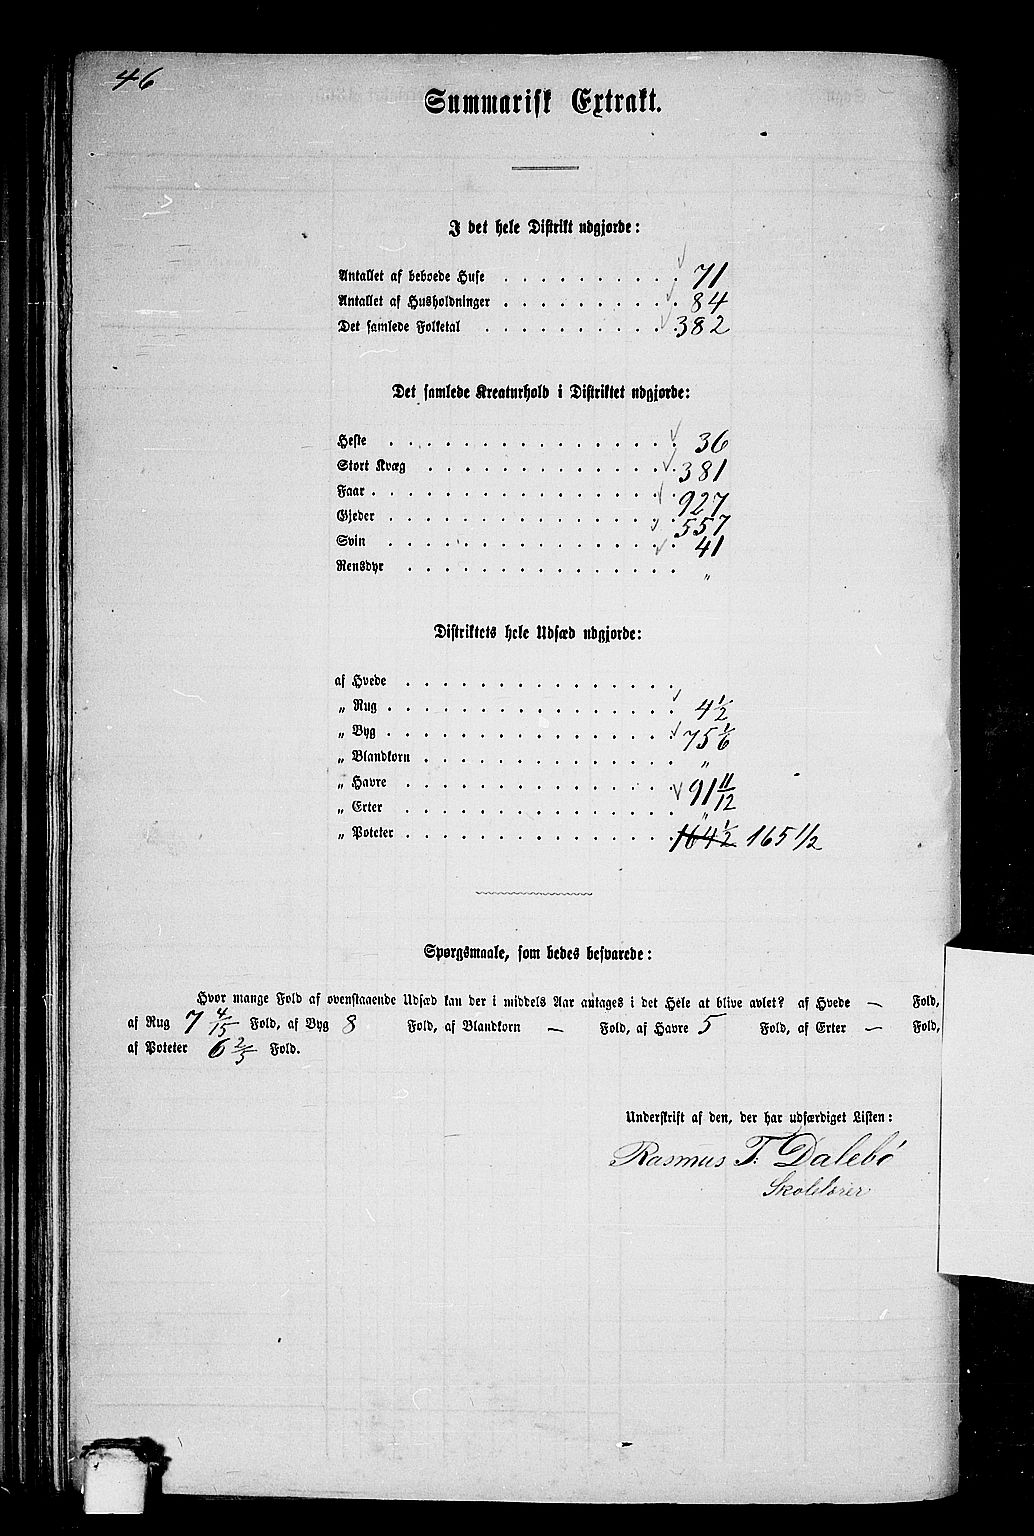 46
Summarisk Extrakt.
I det hele Distrikt udgjorde:
Antallet af beboede Huse . . . . . . . . . . 71
Antallet af Husholdninger . . . . . . . . . . 84
Det samlede Folketal . . . . . . . . . . . 382
Det samlede Kreaturhold i Distriktet udgjorde:
Heste . . . . . . . . . . . . . . . . 36
Stort Kvæg . . . . . . . . . . . . . . 381
Faar . . . . . . . . . . . . . . . . . 927
Gjeder . . . . . . . . . . . . . . . . 557
Svin . . . . . . . . . . . . . . . . 41
Rensdyr . . . . . . . . . . . . . . . "
Distriktets hele Udsæd udgjorde:
af Hvede . . . . . . . . . . . . . . .
„ Rug . . . . . . . . . . . . . . . . 4 1/2
„ Byg . . . . . . . . . . . . . . . . 75 1/6
„ Blandkorn . . . . . . . . . . . . . . "
„ Havre . . . . . . . . . . . . . . . 91 11/12
„ Erter . . . . . . . . . . . . . . . "
„ Poteter . . . . . . . . . . . . . . . 164 1/2 165 1/2
Spørgsmaale, som bedes besvarede:
Hvor mange Fold af ovenstaaende Udsæd kan der i middels Aar antages i det Hele at blive avlet? af Hvede — Fold,
af Rug 7 4/15 Fold, af Byg 8 Fold, af Blandkorn — Fold, af Havre 5 Fold, af Erter — Fold,
af Poteter 6 2/3 Fold.
Underskrift af den, der har udfærdiget Listen:
Rasmus T. Dalebø
Skolelærer